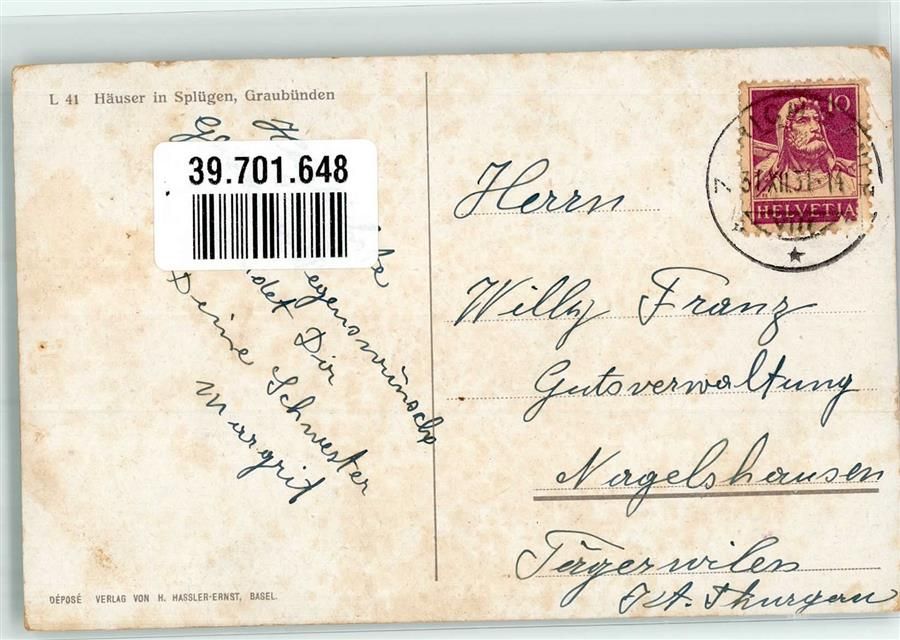 L 41 Häuser in Splügen, Graubünden
39.701.648
Deine Schwester
Margrit
DÉPOSÉ VERLAG VON H. HASSLER-ERNST, BASEL.
10
31.XII.31.14
HELVETIA
Herrn
Willy Franz
Gutsverwaltung
Nagelshausen
Tägerwilen
Kt. Thurgau